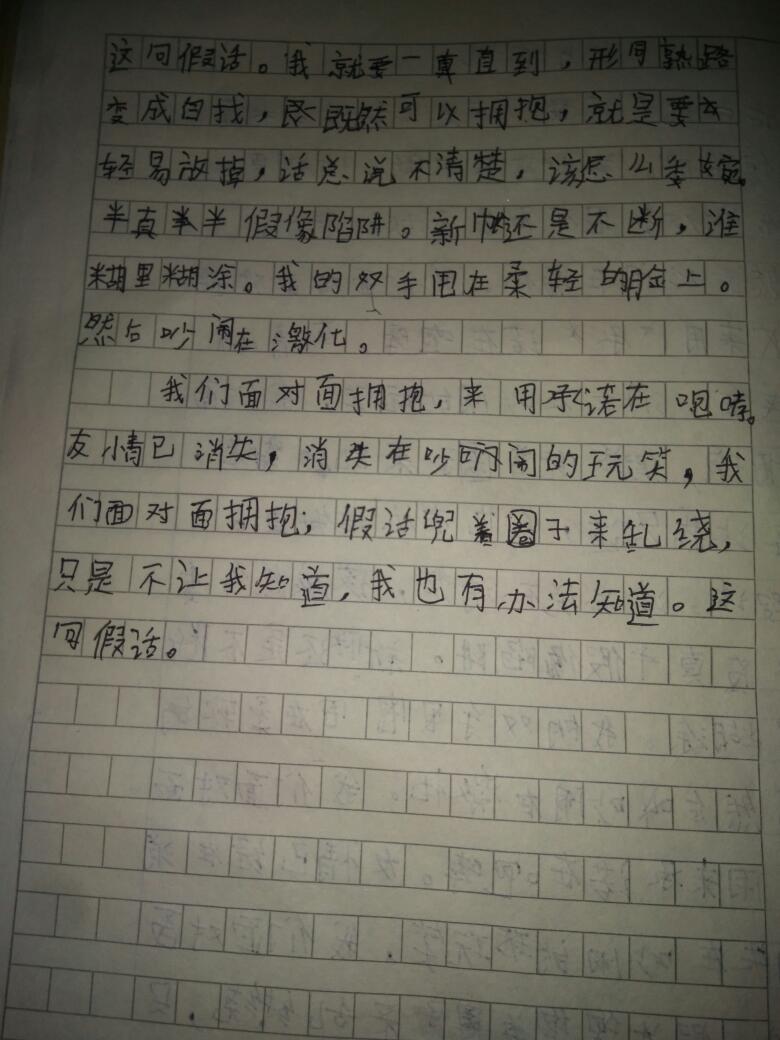 这句假话。我就要一直直到，形同熟路
变成自找，既然可以拥抱，就是要去
轻易放掉，话总说不清楚，该怎么委婉。
半真半假像陷阱。新帐还是不断，谁
糊里糊涂。我的双手甩在柔轻的脸上。
然后吵闹在激化。
我们面对面拥抱，来用承诺在咆哮。
友情已消失，消失在吵闹的玩笑，我
们面对面拥抱；假话兜着圈子来乱绕，
只是不让我知道，我也有办法知道。这
句假话。